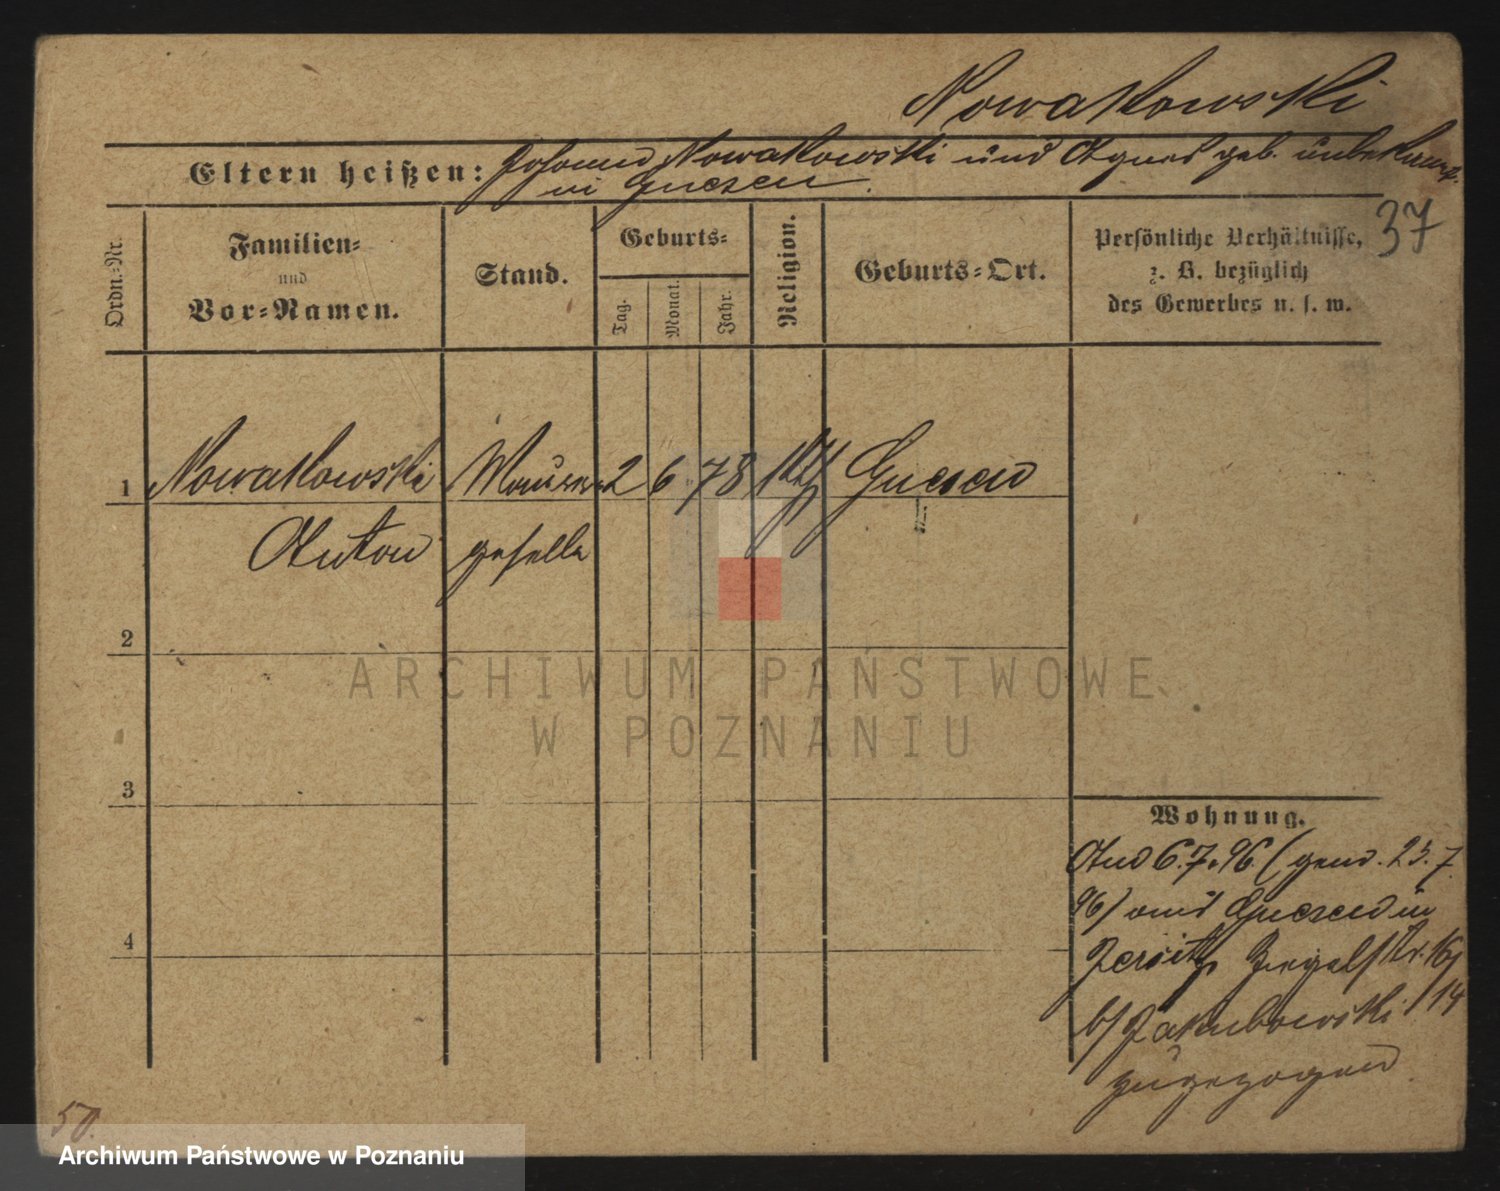 Nowakowski
Eltern heißen: Johann Nowakowski und Agnes geb. unbekannt.
in Gnesen.
37
Ordn.-Nr.
Familien-
und
Vor-Namen.
Stand.
Geburts-
Tag.
Monat.
Jahr.
Religion.
Geburts-Ort.
Persönliche Verhältnisse,
z. B. bezüglich
des Gewerbes u. s. w.
1 Nowakowski Maurer- 2 6 78 kth Gnesen
Anton geselle
2
3
4
Wohnung.
And 6.7.96. (gend. 23.7.
96) aus Gnesen in
Jersitz Ziegelstr. 16
b/ Jakubowski /14
zugezogen
50.
ARCHIWUM PAŃSTWOWE
W POZNANIU
Archiwum Państwowe w Poznaniu